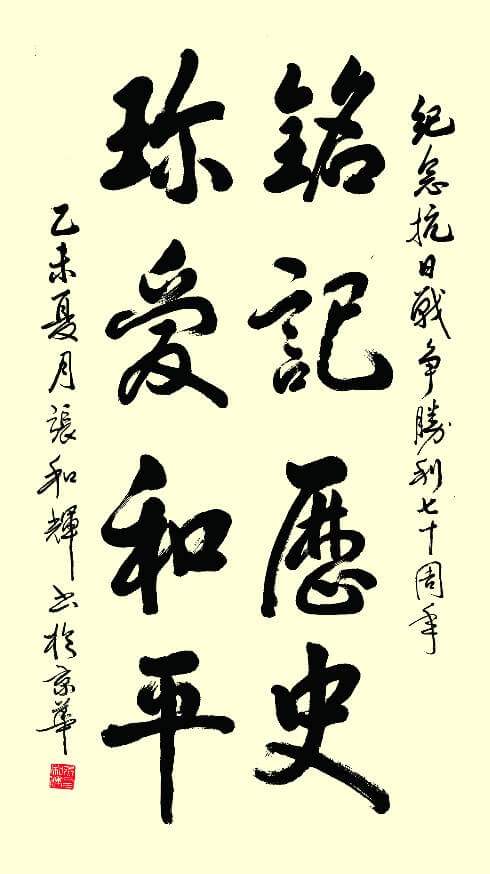 紀念抗日戰争勝利七十周年
銘記歷史
珍爱和平
乙未夏月張和輝书於京華